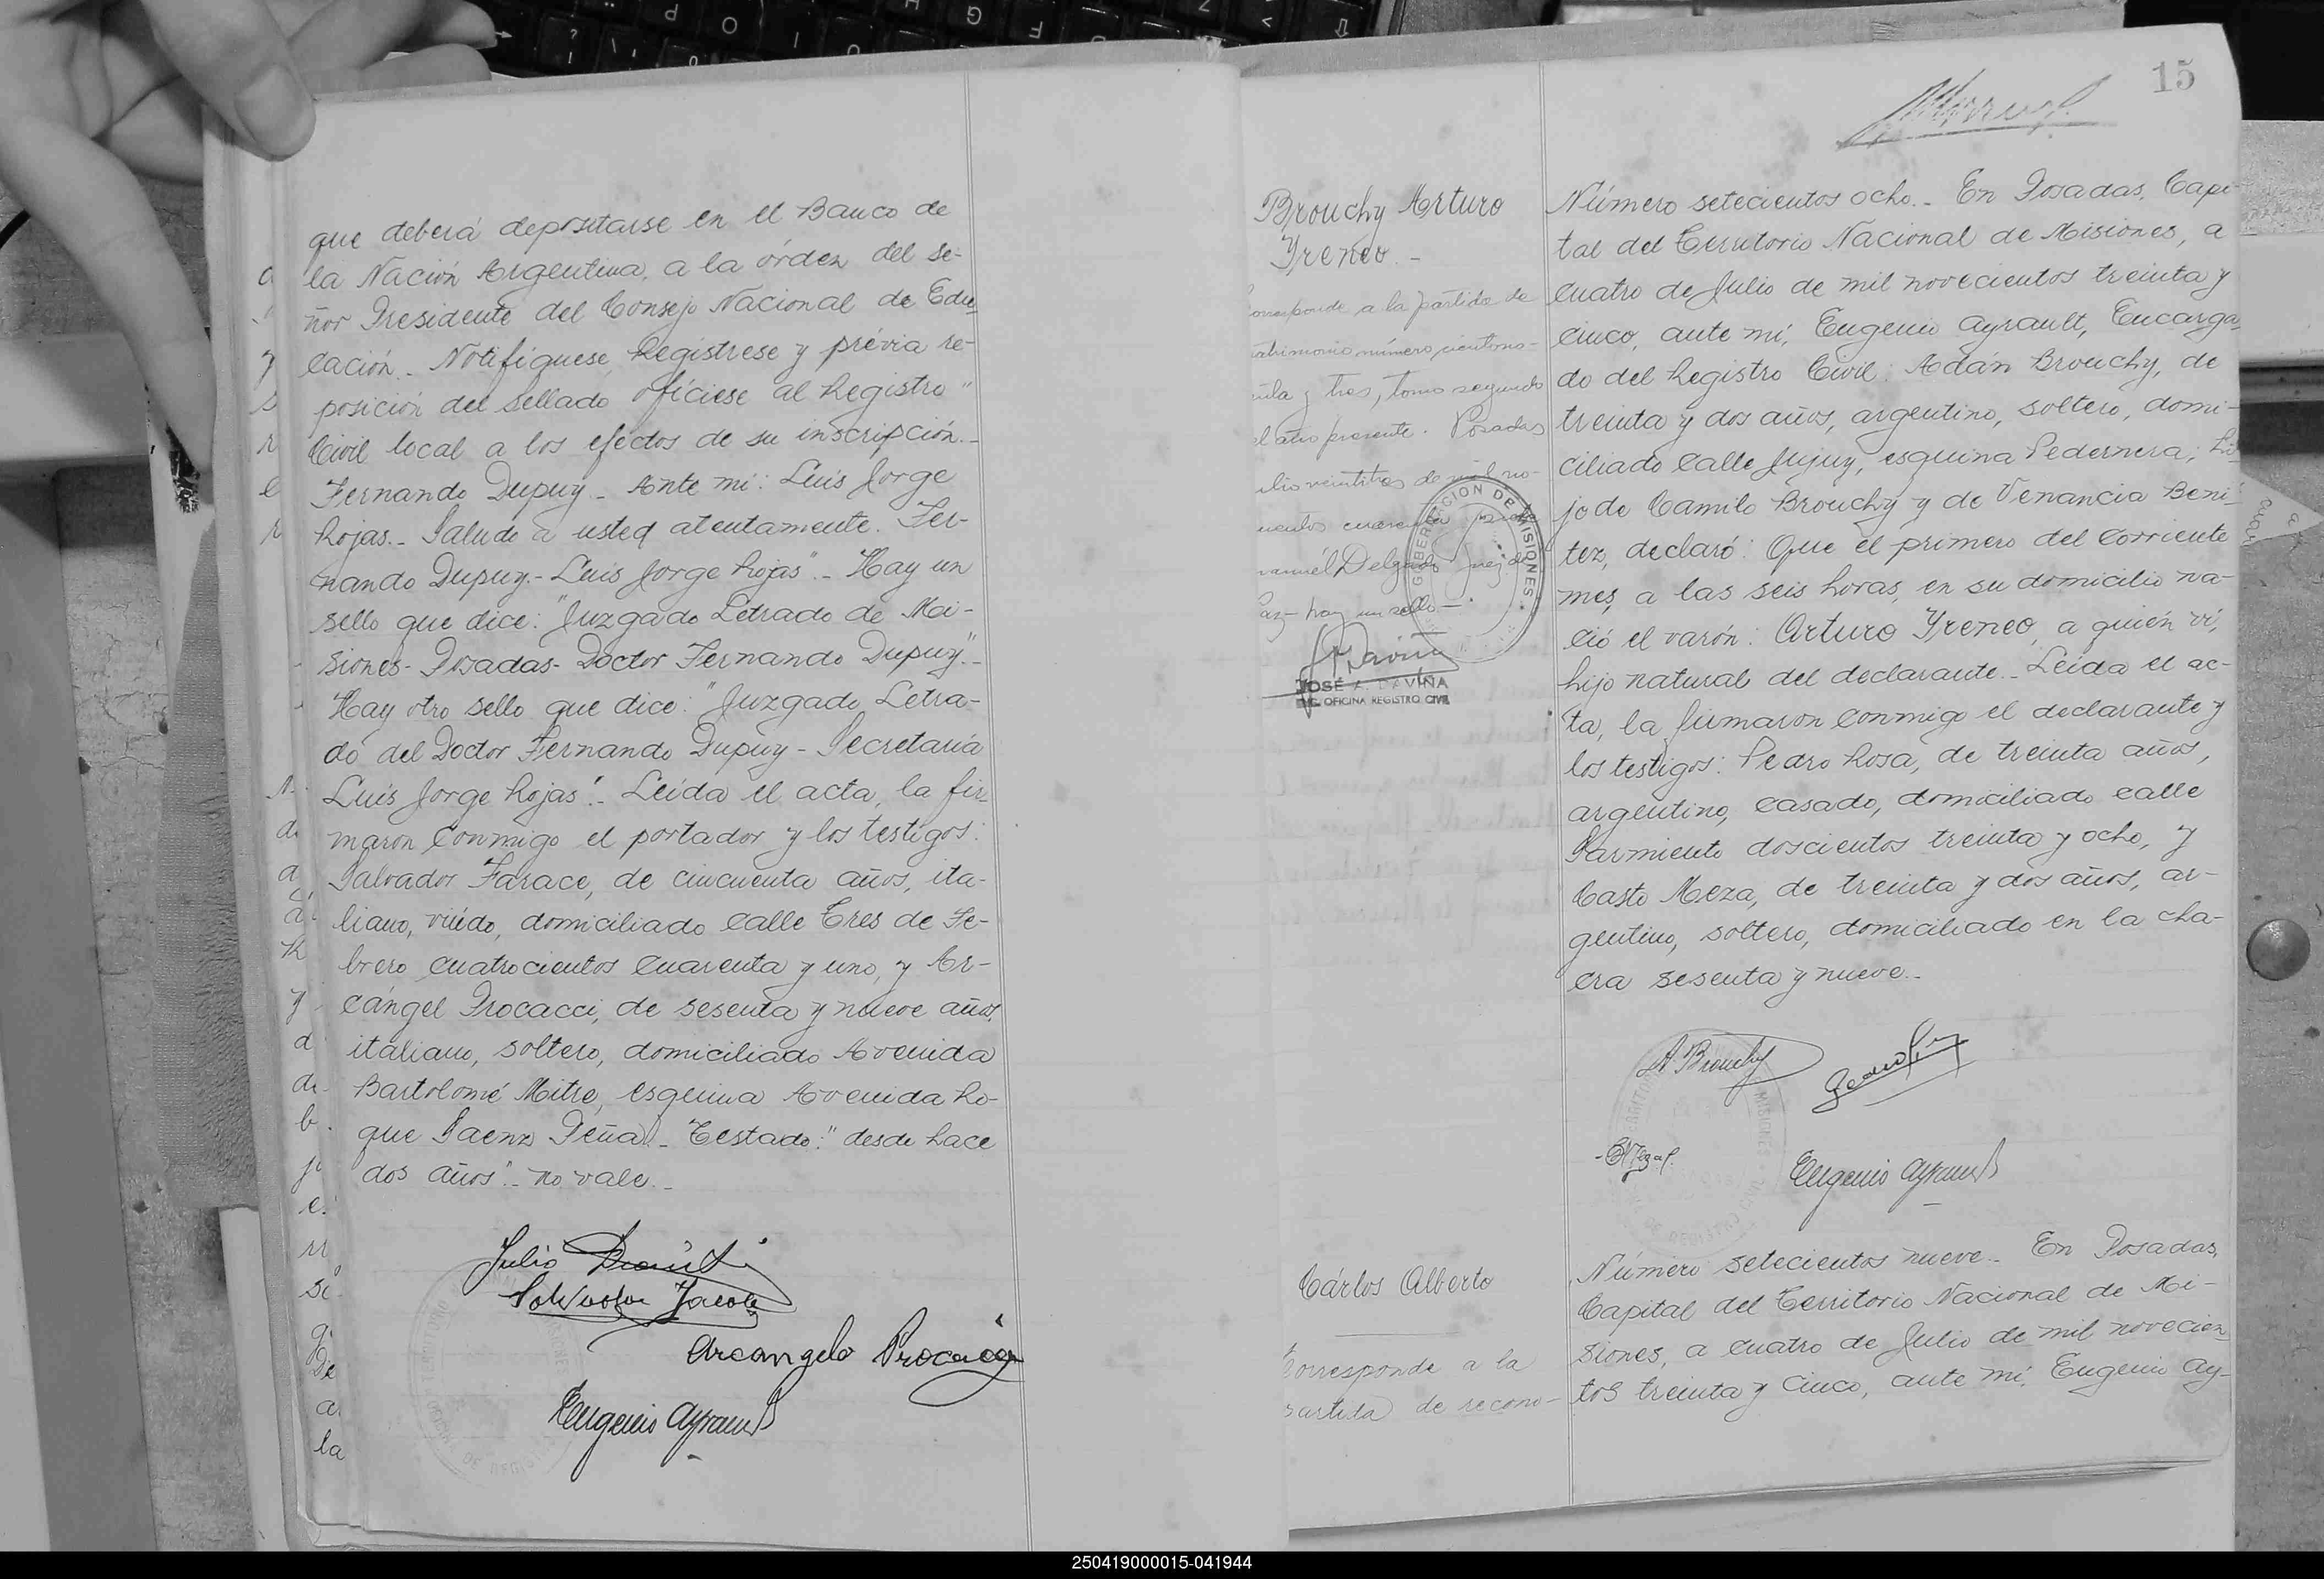 que deberá depositarse en el Banco de
la Nación Argentina, a la órden del se-
ñor Presidente del Consejo Nacional de Edu-
cación. Notifíquese, Regístrese y prévia re-
posición del sellado ofíciese al Registro
Civil local a los efectos de su inscripción.-
Fernando Dupuy - Ante mí: Luis Jorge
Rojas.- Saludo a usted atentamente. Fer-
nando Dupuy.- Luis Jorge Rojas".- Hay un
sello que dice: "Juzgado Letrado de Mi-
siones- Posadas- Doctor Fernando Dupuy".-
Hay otro sello que dice: "Juzgado Letra-
do del Doctor Fernando Dupuy - Secretaría
Luis Jorge Rojas".- Leída el acta, la fir-
maron conmigo el portador y los testigos:
Salvador Farace, de cincuenta años, ita-
liano, viúdo, domiciliado calle Tres de Fe-
brero cuatrocientos cuarenta y uno, y Ar-
cángel Procacci, de sesenta y nueve años,
italiano, soltero, domiciliado Avenida
Bartolomé Mitre, esquina Avenida Ro-
que Saenz Peña.- Testado: "desde hace
dos años".- no vale.-
Julio
Salvador Farace
Arcangelo Procacci
Eugenio Ayrault
15
Brouchy Arturo
Yreneo.-
Corresponde a la partida de
matrimonio número ciento no-
venta y tres, tomo segundo
del año presente. Posadas
Julio veintitres de mil no-
vecientos cuarenta
Manuél Delgado juez de
Paz- hay un sello-
GOBERNACION DE MISIONES
JOSÉ A. DAVIÑA
ENC. OFICINA REGISTRO CIVIL
Número setecientos ocho.- En Posadas, Capi-
tal del Territorio Nacional de Misiones, a
cuatro de Julio de mil novecientos treinta y
cinco, ante mí, Eugenio Ayrault, Encarga-
do del Registro Civil: Adán Brouchy, de
treinta y dos años, argentino, soltero, domi-
ciliado calle Jujuy, esquina Pedernera; hi-
jo de Camilo Brouchy y de Venancia Bení-
tez, declaró: Que el primero del corriente
mes, a las seis horas, en su domicilio na-
ció el varón: Arturo Yreneo, a quién ví,
hijo natural del declarante.- Leída el ac-
ta, la firmaron conmigo el declarante y
los testigos: Pedro Rosa, de treinta años,
argentino, casado, domiciliado calle
Sarmiento doscientos treinta y ocho, y
Casto Meza, de treinta y dos años, ar-
gentino, soltero, domiciliado en la cha-
cra sesenta y nueve.-
A. Brouchy
Eugenio Ayrault
Cárlos Alberto
Corresponde a la
partida de recono-
Número setecientos nueve.- En Posadas,
Capital del Territorio Nacional de Mi-
siones, a cuatro de Julio de mil novecien-
tos treinta y cinco, ante mí, Eugenio Ay-
250419000015-041944